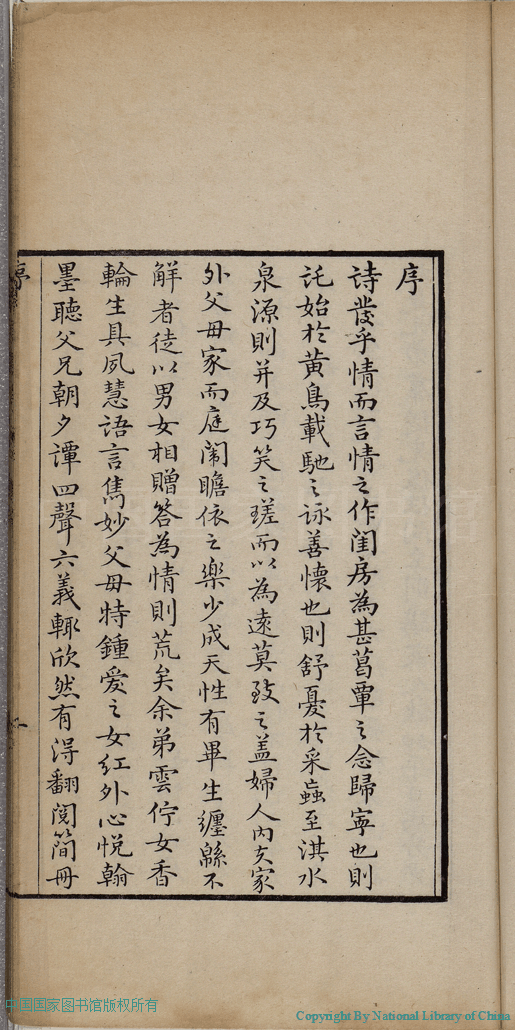 序
詩發乎情而言情之作閨房為甚葛覃之念歸寧也則
託始於黃鳥載馳之詠善懷也則舒憂於采蝱至淇水
泉源則并及巧笑之瑳而以為遠莫致之蓋婦人內夫家
外父母家而庭闈瞻依之樂少成天性有畢生纏緜不
解者徒以男女相贈答為情則荒矣余弟雲佇女香
輪生具夙慧語言雋妙父母特鍾愛之女紅外心悅翰
墨聽父兄朝夕譚四聲六義輒欣然有得翻閱簡冊
序
中国国家图书馆版权所有
Copyright By National Library of China